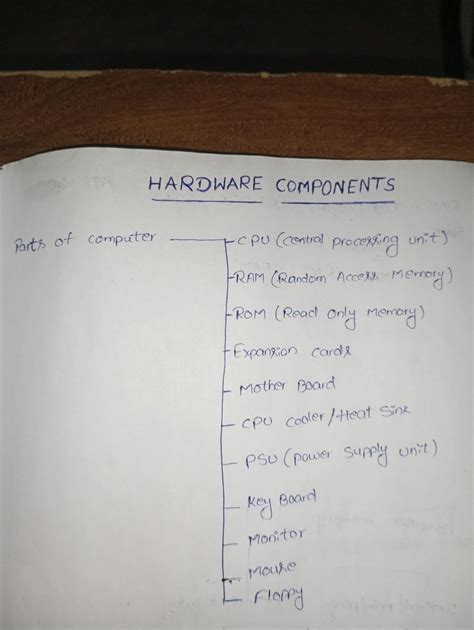 HARDWARE COMPONENTS
Parts of computer
CPU (Central processing unit)
RAM (Random Access Memory)
ROM (Read Only Memory)
Expansion cards
Mother Board
CPU Cooler/Heat Sink
PSU (Power Supply Unit)
Key Board
Monitor
Mouse
Floppy